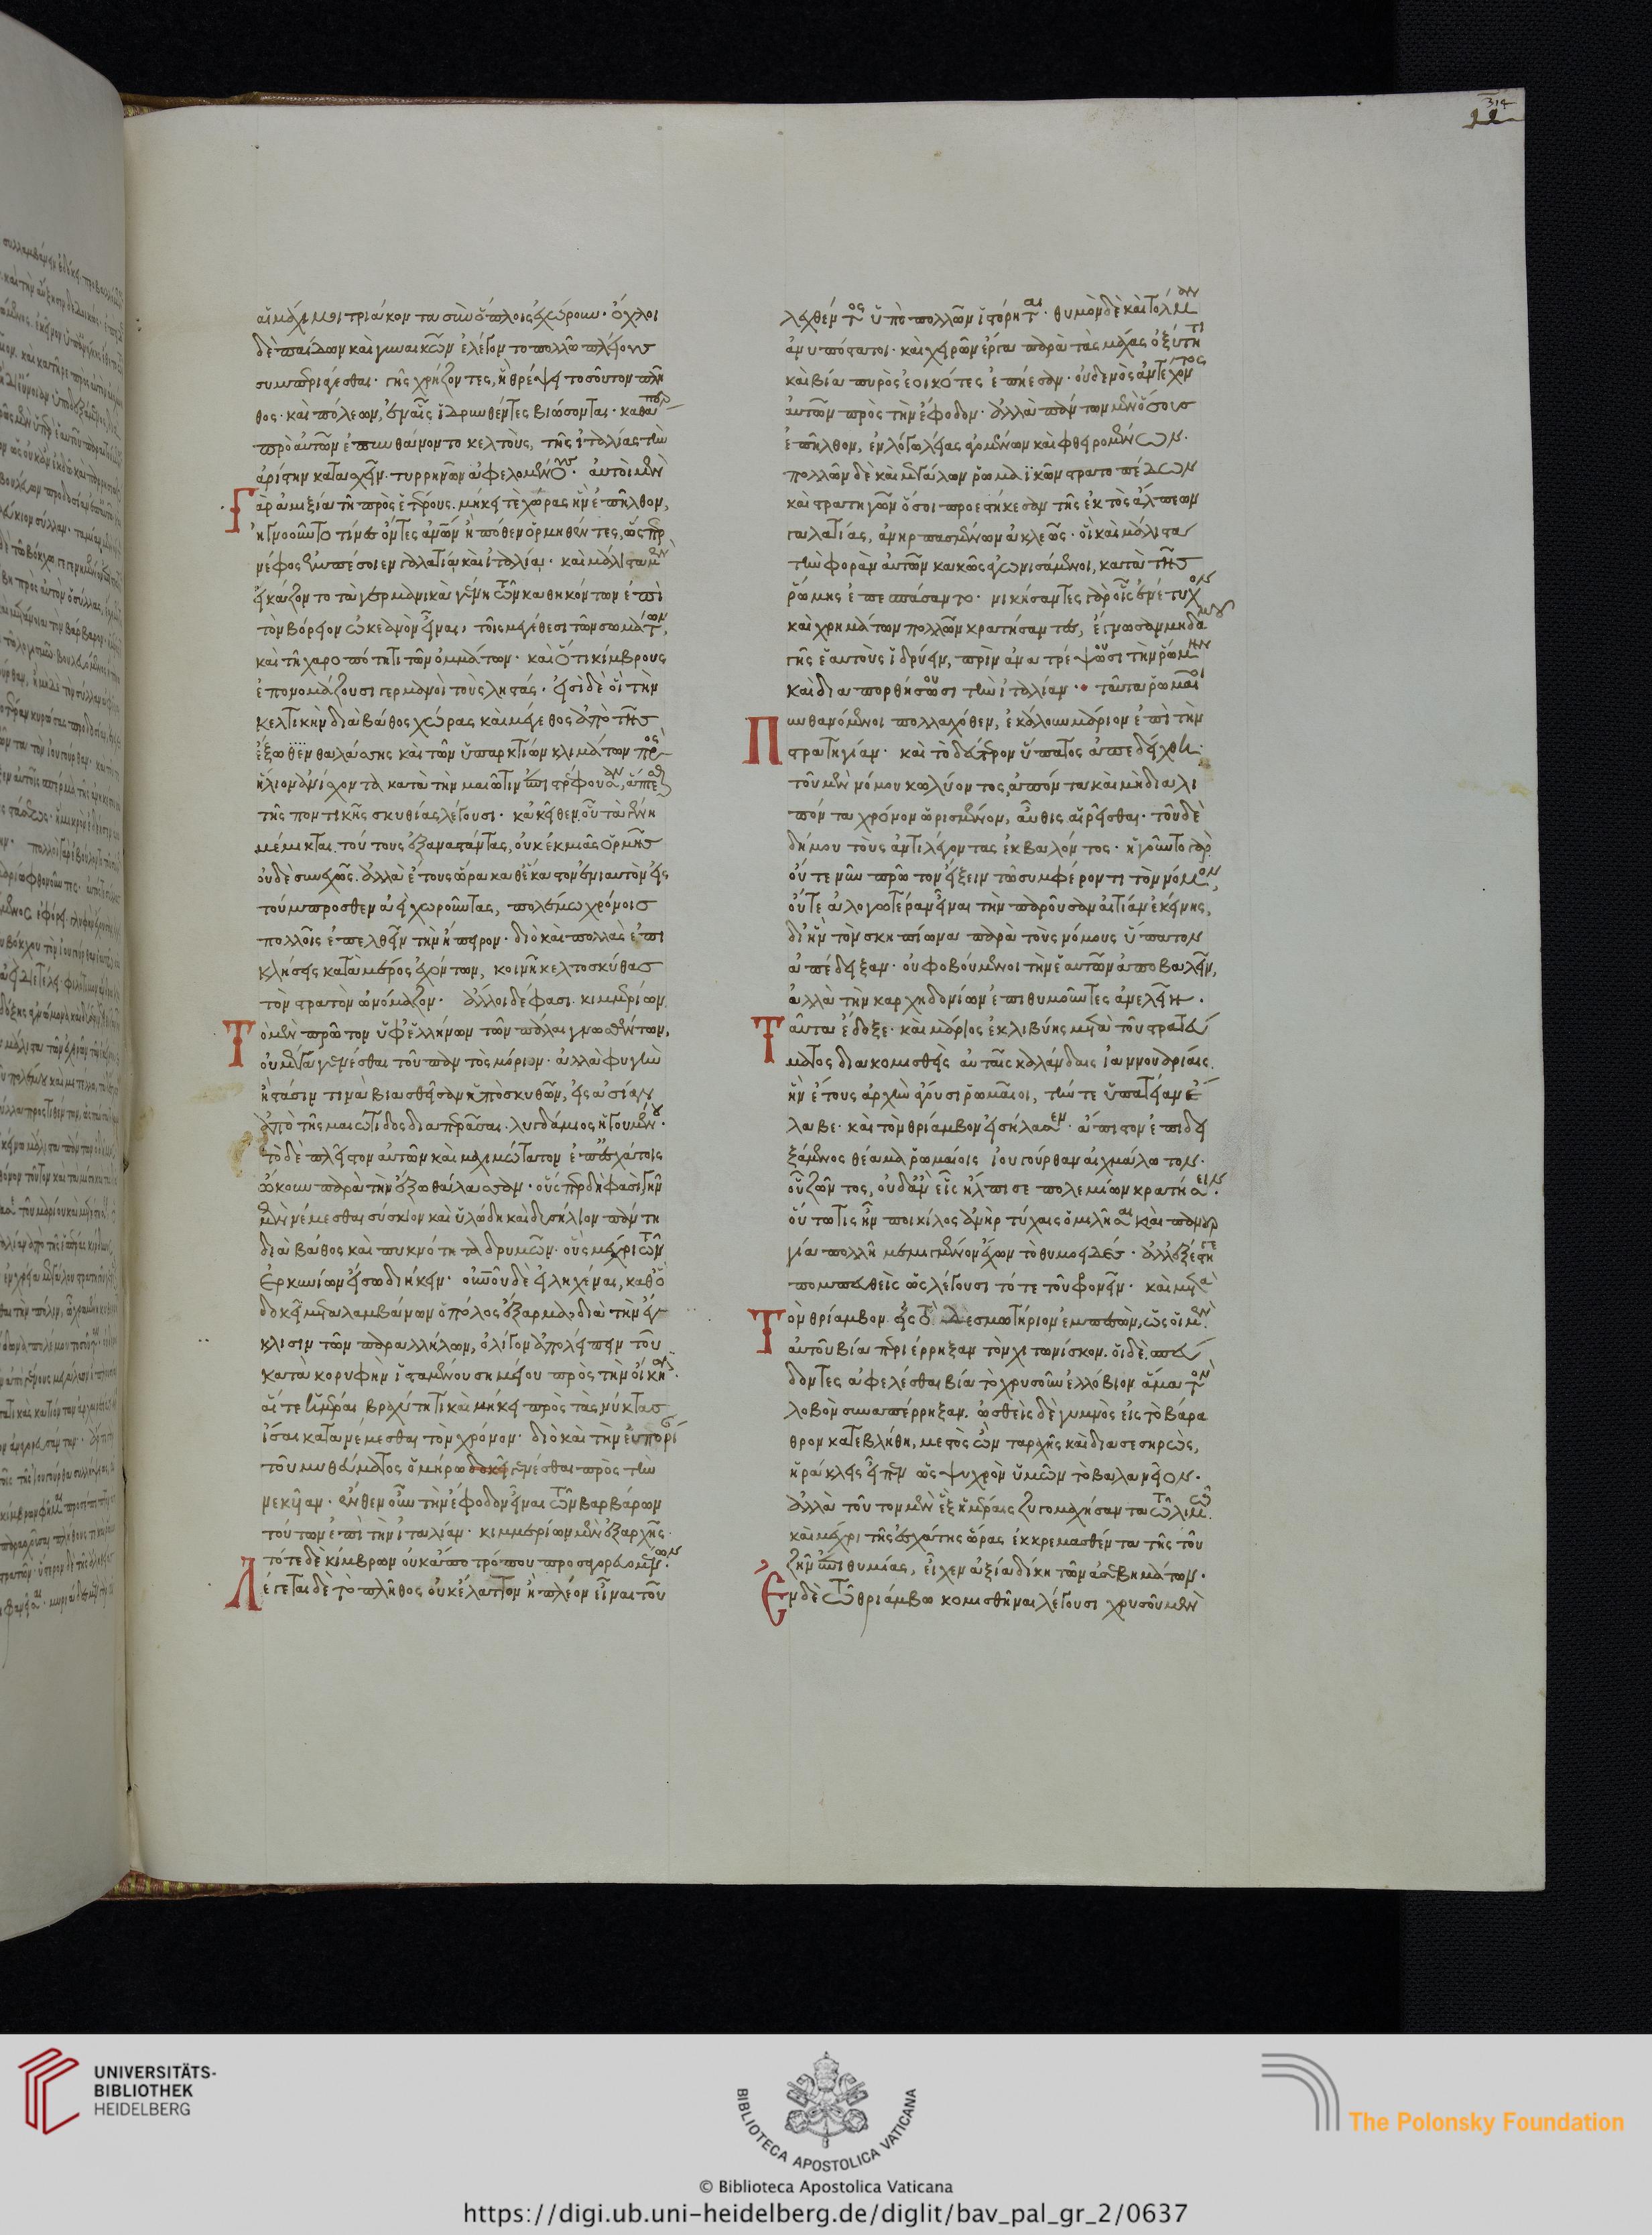 αἵ μάχιμοι τριάκοντα σὺν ὅπλοις ἐχώρουν. ὄχλοι
δὲ παίδων καὶ γυναικῶν ἐλέγοντο πολλῶ πλείους
συμπεριάγεσθαι. γῆς χρήζοντες, ἣ θρέψει τοσοῦτον πλῆ
θος. καὶ πόλεων, ἐν αἷς ἱδρυνθέντες βιώσονται. καθάπερ
πρὸ αὐτῶν ἐπυνθάνοντο κελτοὺς, τῆς ἰταλίας τὴν
ἀρίστην κατασχεῖν. τυρρηνῶν ἀφελομένους. αὐτοὶ μὲν
Γὰρ ἀμιξία τῆ πρὸς ἑτέρους. μήκει τὲ χώρας ἣν ἐπῆλθον,
ἠγνοοῦντο τίνες ὄντες ἀνῶν ἢ πόθεν ὁρμηθέντες, ὥσπερ
νέφος ἐμπέσοιεν γαλατία καὶ ἰταλία. καὶ μάλιστα μὲν
εἰκάζοντο τὰ γερμανικὰ γένη τῶν καθηκόντων ἐπὶ
τὸν βόρειον ὠκεανὸν εἶναι, τοῖς μεγέθεσι τῶν σωμάτων,
καὶ τῆ χαροπότητι τῶν ὀμμάτων. καὶ ὅτι κίμβρους
ἐπονομάζουσι γερμανοὶ τοὺς ληστάς. εἰσὶ δὲ οἳ τὴν
κελτικὴν διὰ βάθος χώρας καὶ μέγεθος ἀπὸ τῆς
ἔξωθεν θαλάσσης καὶ τῶν ὑπαρκτίων κλιμάτων πρὸς
ἥλιον ἀνίσχοντα κατὰ τὴν μαιῶτιν ἐπιστρέφουσαν, ἅπτεσθαι
τῆς ποντικῆς σκυθίας λέγουσι. κἀκεῖθεν οὖ τὰ γένη
μέμικται. τούτους ἐξαναστάντας, οὐκ ἐκ μιᾶς ὁρμῆς
οὐδὲ συνεχῶς. ἀλλὰ ἔτους ὥρα καθ' ἕκαστον ἐνιαυτὸν εἰς
τοὔμπροσθεν ἀεὶ χωροῦντας, πολέμω χρόνοις
πολλοῖς ἐπελθεῖν τὴν ἤπειρον. διὸ καὶ πολλὰς ἐπι
κλήσεις κατὰ μέρος ἐχόντων, κοινῆ κελτοσκύθας
τὸν στρατὸν ὠνόμαζον. ἄλλοι δέ φασι. κιμμερίων
Τὸ μὲν πρῶτον ὑφ' ἑλλήνων τῶν πάλαι γνωσθέντων,
οὐ μέγα γενέσθαι τοῦ παντὸς μόριον. ἀλλὰ φυγὴν
ἢ στάσιν τινὰ βιασθεῖσαν ὑπὸ σκυθῶν, εἰς ἀσίαν
ἀπὸ τῆς μαιώτιδος διαπερᾶσαι. λυγδάμιος ἡγουμένου.
τὸ δὲ πλεῖστον αὐτῶν καὶ μαχιμώτατον ἐπ' ἐσχάτοις
ὤκουν παρὰ τὴν ἔξω θάλασσαν. οὕσπερ δή φασι, γῆν
μὲν νέμεσθαι σύσκιον καὶ ὑλώδη καὶ δυσήλιον πάντη
διὰ βάθος καὶ πυκνότητα δρυμῶν. οὓς μέχρι τῶν
ἑρκυνίων εἴσω διήκειν. οὐνοῦ δὲ εἰληχέναι, καθ' ὃ
δοκεῖ μέγα λαμβάνων ὁ πόλος ἔξαρμα, διὰ τὴν ἔγ
κλισιν τῶν παραλλήλων, ὀλίγον ἀπολείπειν τοῦ
κατὰ κορυφὴν ἱσταμένου σημείου πρὸς τὴν οἴκησιν.
αἵ τε ἡμέραι βραχύτητι καὶ μήκει πρὸς τὰς νύκτας
ἴσαι κατανέμεσθαι τὸν χρόνον. διὸ καὶ τὴν εὐπορί
τοῦ μυθεύματος ὁμήρω δοκεῖ γενέσθαι πρὸς τὴν
νεκυίαν. ἔνθεν οὖν τὴν ἔφοδον εἶναι τῶν βαρβάρων
τούτων ἐπὶ τὴν ἰταλίαν. κιμμερίων μὲν ἐξ ἀρχῆς.
τότε δὲ κίμβρων οὐκ ἀπὸ τρόπου προσαγορευομένων.
Λέγεται δὲ τὸ πλῆθος οὐκ ἔλαττον ἢ πλέον εἶναι τοῦ
314
λεχθέντος ὑπὸ πολλῶν ἱστόρηται. θυμὸν δὲ καὶ τόλμαν
ἀνυπόστατοι. καὶ χειρῶν ἔργα παρὰ τὰς μάχας ὀξύτητι
καὶ βία πυρὸς ἐοικότες ἐπήεσαν. οὐδενὸς ἀντέχοντος
αὐτῶν πρὸς τὴν ἔφοδον. ἀλλὰ πάντων μὲν ὅσους
ἐπῆλθον, ἐν λόγω λείας ἀγομένων καὶ φθερομένων.
πολλῶν δὲ καὶ μεγάλων ῥωμαϊκῶν στρατοπέδων
καὶ στρατηγῶν ὅσοι προεστήκεσαν τῆς ἐκτὸς ἄλπεων
γαλατίας, ἀνηρπασμένων ἀκλεῶς. οἳ καὶ μάλιστα
τὴν φορὰν αὐτῶν κακῶς ἀγωνισάμενοι, κατὰ τῆς
ῥώμης ἐπεσπάσαντο. νικήσαντες γὰρ οἷς ἐνέτυχον
καὶ χρημάτων πολλῶν κρατήσαντες, ἔγνωσαν μηδαμοῦ
γῆς ἑαυτοὺς ἱδρύειν, πρὶν ἀνατρέψωσι τὴν ῥώμην
καὶ διαπορθήσωσι τὴν ἰταλίαν. ταῦτα ῥωμαῖοι
Πυνθανόμενοι πολλαχόθεν, ἐκάλουν μάριον ἐπὶ τὴν
στρατηγίαν. καὶ τὸ δεύτερον ὕπατος ἀπεδείχθη.
τοῦ μὲν νόμου κωλύοντος, ἀπόντα καὶ μὴ διαλι
πόντα χρόνον ὡρισμένον, αὖθις αἱρεῖσθαι. τοῦ δὲ
δήμου τοὺς ἀντιλέγοντας ἐκβαλόντος. ἡγοῦντο γὰρ
οὔτε νῦν πρῶτον εἴξειν τῶ συμφέροντι τὸν νόμον,
οὔτε ἀλογωτέραν εἶναι τὴν παροῦσαν αἰτίαν ἐκείνης,
δι' ἣν τὸν σκηπίωνα παρὰ τοὺς νόμους ὕπατον
ἀπέδειξαν. οὐ φοβούμενοι τὴν ἑαυτῶν ἀποβαλεῖν,
ἀλλὰ τὴν καρχηδονίων ἐπιθυμοῦντες ἀνελεῖν.
Ταῦτα ἔδοξε. καὶ μάριος ἐκ λιβύης μετὰ τοῦ στρατεύ
ματος διακομισθεὶς αὐταῖς καλάνδαις ἰαννουαρίαις.
ἣν ἔτους ἀρχὴν ἄγουσι ῥωμαῖοι, τήν τε ὑπατείαν ἀνέ
λαβε. καὶ τὸν θρίαμβον εἰσήλασεν. ἄπιστον ἐπιδει
ξάμενος θέαμα ῥωμαίοις ἰουγούρθαν αἰχμάλωτον.
οὗ ζῶντος, οὐδ' ἂν εἷς ἤλπισε πολεμίων κρατήσειν.
οὕτω τις ἦν ποικίλος ἀνὴρ τύχαις ὁμιλῆσαι καὶ πανουρ
γία πολλῆ μεμιγμένον ἔχων τὸ θυμοειδές. ἀλλ' ἐξέστη γε
πομπευθεὶς ὡς λέγουσι τότε τοῦ φρονεῖν. καὶ μετὰ
Τὸν θρίαμβον εἰς τὸ δεσμωτήριον ἐμπεσὼν, ὡς οἱ μὲν
αὐτοῦ βία περιέρρηξαν τὸν χιτωνίσκον. οἱ δὲ σπεύ
δοντες ἀφελέσθαι βία τὸ χρυσοῦν ἐλλόβιον ἅμα τὸν
λοβὸν συναπέρρηξαν. ὠσθεὶς δὲ γυμνὸς εἰς τὸ βάρα
θρον κατεβλήθη, μεστὸς ὢν ταραχῆς καὶ διασεσηρὼς,
ἡράκλεις εἶπεν ὡς ψυχρὸν ὑμῶν τὸ βαλανεῖον.
ἀλλὰ τοῦτον μὲν ἓξ ἡμέραις ζυγομαχήσαντα τῶ λιμῶ.
καὶ μέχρι τῆς ἐσχάτης ὥρας ἐκκρεμασθέντα τῆς τοῦ
ζῆν ἐπιθυμίας, εἶχεν ἀξία δίκη τῶν ἀσεβημάτων.
Ἐν δὲ τῶ θριάμβω κομισθῆναι λέγουσι χρυσοῦ μὲν
UNIVERSITÄTS-
BIBLIOTHEK
HEIDELBERG
BIBLIOTECA APOSTOLICA VATICANA
The Polonsky Foundation
© Biblioteca Apostolica Vaticana
https://digi.ub.uni-heidelberg.de/diglit/bav_pal_gr_2/0637